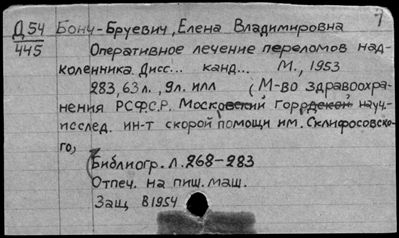 7
Д54 Бонч-Бруевич, Елена Владимировна
445 Оперативное лечение переломов над-
коленника. Дисс... канд... М., 1953
283, 63 л., 9 л. илл (М-во здравоохра-
нения РСФСР. Московский Городской науч.-
исслед. ин-т скорой помощи им. Склифосовско-
го)
Библиогр. л. 268-283
Отпеч. на пиш. маш.
Защ В1954